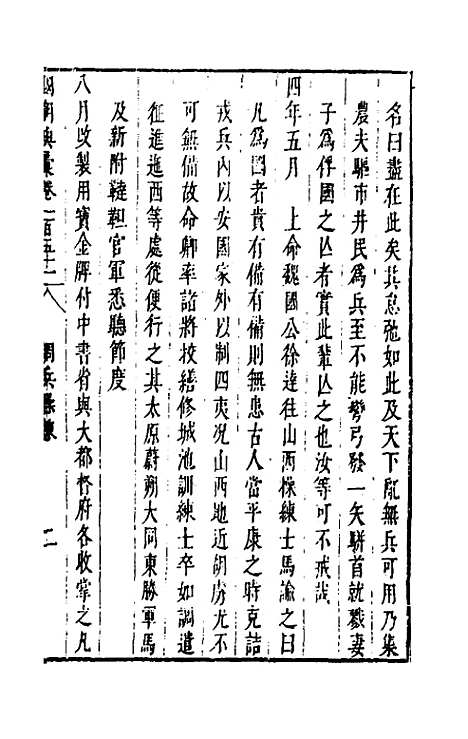 名曰盡在此矣其怠弛如此及天下亂無兵可用乃集
農夫驅市井民爲兵至不能彎弓發一矢駢首就戮妻
子爲俘國之亾者實此輩亾之也汝等可不戒哉
四年五月 上命魏國公徐達往山西操練士馬諭之曰
凡爲國者貴有備有備則無患古人當平康之時克詰
戎兵內以安國家外以制四夷况山西地近胡虜尤不
可無備故命卿率諸將校繕修城池訓練士卒如調遣
征進迤西等處從便行之其太原蔚朔大同東勝軍馬
及新附韃靼官軍悉聽節度
八月改製用寳金牌付中書省與大都督府各收掌之凡
國朝典彙卷一百五十二 閱兵